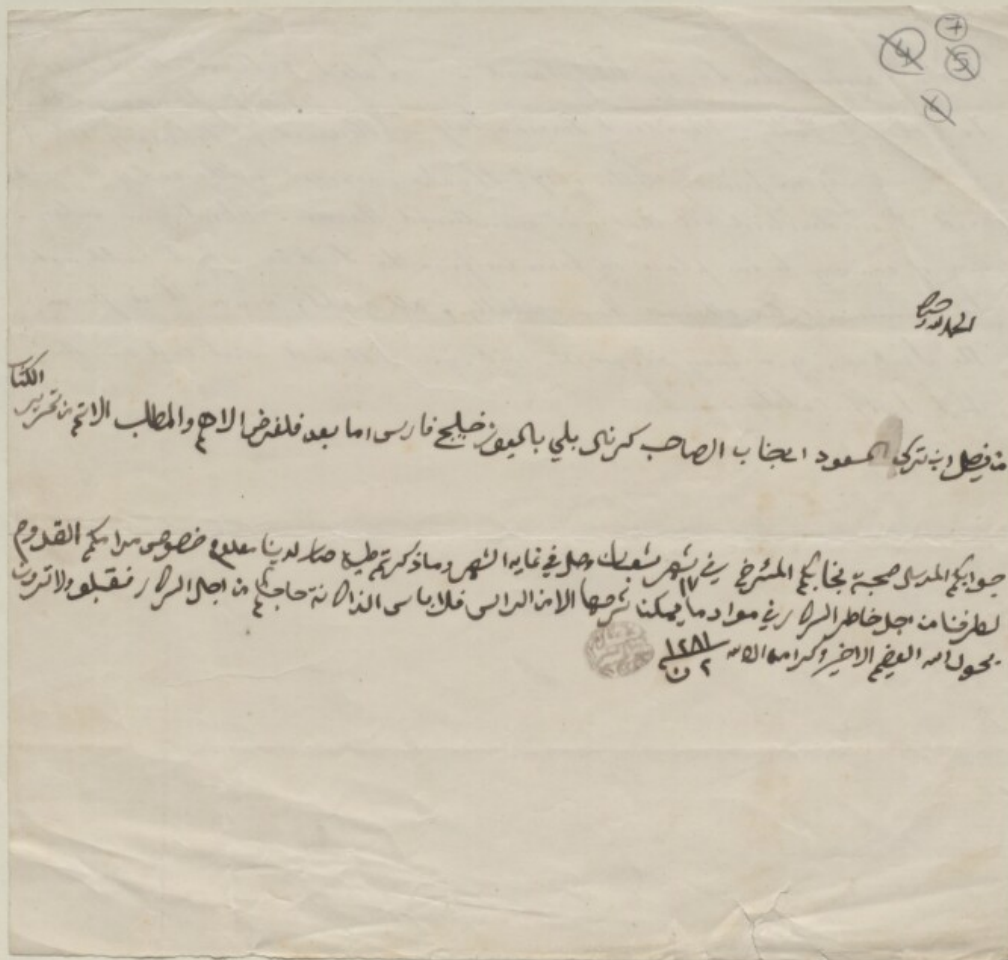 7
4 5
1
الحمد لله وحده
الكتاب
من فيصل ابن تركي السعود الجناب الصاحب كرنال بلي باليوز خليج فارس اما بعد فلغرض الاهم والمطلب الاتم من تحرير
جوابكم المرسل صحبة نجابكم المئرخ في ١٧ شهر شعبان وصل في غاية الشهر وما ذكرتم طيبه صار لدينا معلوم خصوص مرامكم القدوم
لطرفنا من اجل خاطر السركار في مواد ما يمكنا شرحها الا من الراس فلا باس الذا كانة حاجتكم من اجل السركار فتقبلو ولا ترون
بحول الله العظيم الا خير وكرامه والسلام ٢ ن ١٢٨١